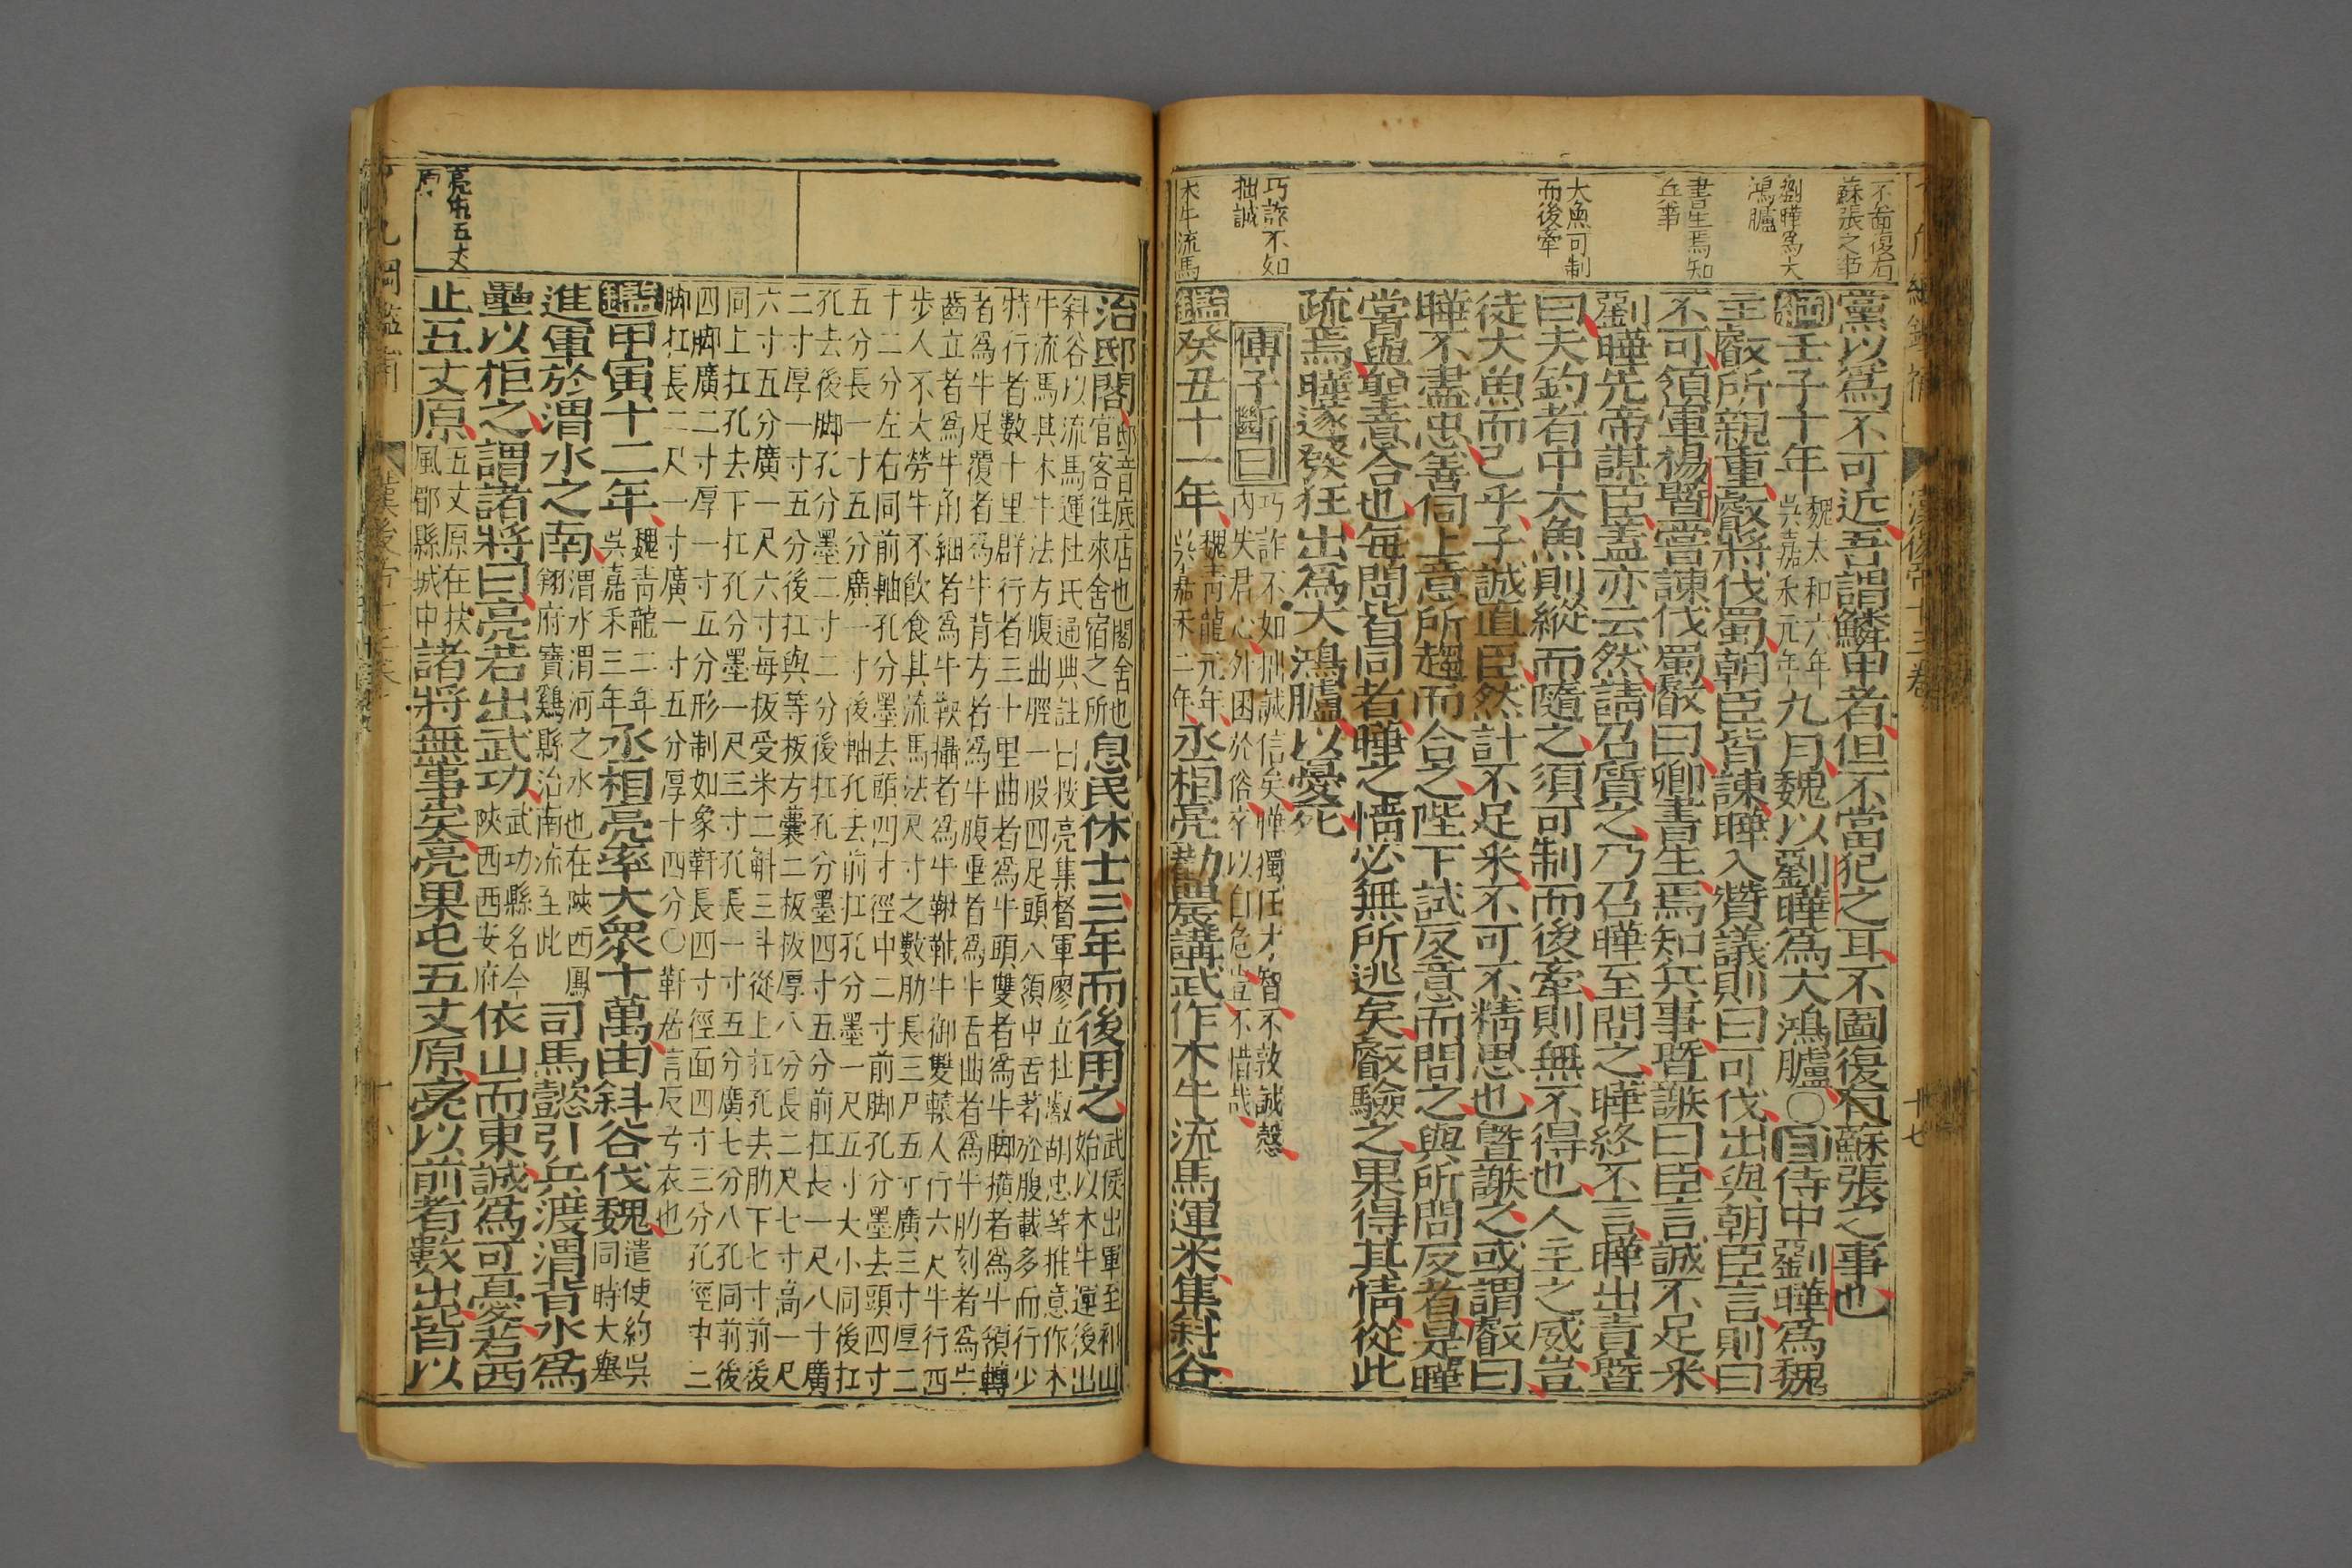 不啚復有
蘇張之事
劉曄為大
鴻臚
書生焉知
兵事
大魚可制
而後牽
巧詐不如
拙誠
木牛流馬
黨以為不可近吾謂鱗甲者但不當犯之耳不圖復有蘇張之事也
綱壬子十年
魏太和六年
吳嘉禾元年
九月魏以劉曄為大鴻臚○目侍中劉曄為魏
主叡所親重叡將伐蜀朝臣皆諫曄入贊議則曰可伐出與朝臣言則曰
不可領軍楊暨嘗諫伐蜀叡曰卿書生焉知兵事暨謝曰臣言誠不足采
劉曄先帝謀臣盖亦云然請召質之乃召曄至問之曄終不言曄出責暨
曰夫釣者中大魚則縱而隨之須可制而後牽則無不得也人主之威豈
徒大魚而已乎子誠直臣然計不足采不可不精思也暨謝之或謂叡曰
曄不盡忠善伺上意所趨而合之陛下試反意而問之與所問反者是曄
常與聖意合也每問皆同者曄之情必無所逃矣叡驗之果得其情從此
疏焉曄遂發狂出為大鴻臚以憂死
傅子斷曰
巧詐不如拙誠信矣曄獨任才智不敦誠慤
內失君心外困於俗卒以自危豈不惜哉
鑑癸丑十一年
魏青龍元年
吳嘉禾二年
丞相亮勸農講武作木牛流馬運米集斜谷
亮屯五丈
原
治邸閣
邸音底店也閣舍也
官客往來舍宿之所
息民休士三年而後用之
武侯出軍至祁山
始以木牛運後出
斜谷以流馬運杜氏通典註曰按亮集督軍廖立杜叡胡忠等推意作木
牛流馬其木牛法方腹曲脛一股四足頭入領中舌著於腹載多而行少
特行者數十里群行者三十里曲者為牛頭雙者為牛脚橫者為牛領轉
者為牛足覆者為牛背方者為牛腹垂者為牛舌曲者為牛肋刻者為牛
齒立者為牛角細者為牛鞅攝者為牛鞦軸牛御雙轅人行六尺牛行四
步人不大勞牛不飲食其流馬法尺寸之數肋長三尺五寸廣三寸厚二
十二分左右同前軸孔分墨去頭四寸徑中二寸前脚孔分墨去頭四寸
五分長一寸五分廣一寸後軸孔去前扛孔分墨一尺五寸大小同後扛
孔去後脚孔分墨二寸二分後扛孔分墨四寸五分前扛長一尺八寸廣
二寸厚一寸五分後扛與等板方囊二板板厚八分長二尺七寸高一尺
六寸五分廣一尺六寸每板受米二斛三斗從上扛孔去肋下七寸前後
同上扛孔去下扛孔分墨一尺三寸孔長一寸五分廣七分八孔同前後
四脚廣二寸厚一寸五分形制如象靬長四寸徑面四寸三分孔徑中三
脚扛長二尺一寸廣一寸五分厚十四分○靬居言反弓衣也
鑑甲寅十二年
魏青龍二年
吳嘉禾三年
丞相亮率大衆十萬由斜谷伐魏
遣使約吳
同時大舉
進軍於渭水之南
渭水渭河之水也在陝西鳳
翔府寶鷄縣治南流至此
司馬懿引兵渡渭背水為
壘以柜之謂諸將曰亮若出武功
武功縣名今
陝西西安府
依山而東誠為可憂若西
止五丈原
五丈原在扶
風郡縣城中
諸將無事矣亮果屯五丈原亮以前者數出皆以